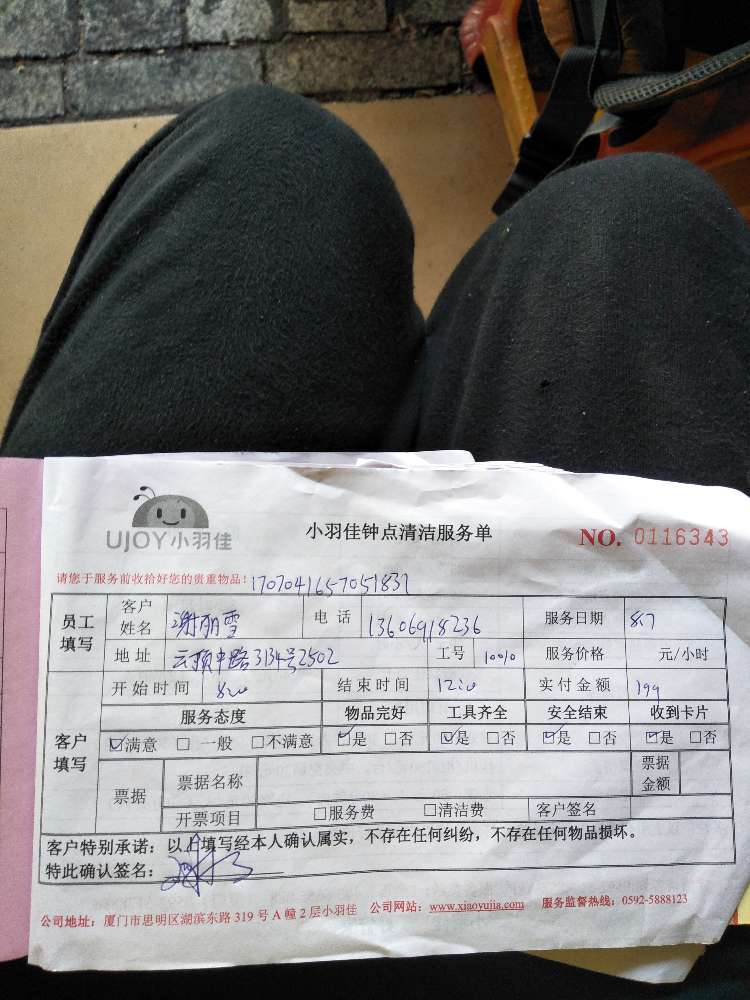 UJOY小羽佳
小羽佳钟点清洁服务单
NO. 0116343
请您于服务前收拾好您的贵重物品!
员工填写 客户姓名 谢丽雪 电话 13606918236 服务日期 8.17
地址 云顶中路3134号2502 工号 10010 服务价格 元/小时
客户填写 开始时间 8:00 结束时间 12:00 实付金额 199
服务态度 物品完好 工具齐全 安全结束 收到卡片
☑满意 □一般 □不满意 ☑是 □否 ☑是 □否 ☑是 □否 ☑是 □否
票据 票据名称 票据金额
开票项目 □服务费 □清洁费 客户签名
客户特别承诺:以上填写经本人确认属实,不存在任何纠纷,不存在任何物品损坏。
特此确认签名:
公司地址:厦门市思明区湖滨东路 319 号 A 幢 2 层小羽佳 公司网站:www.xiaoyujia.com 服务监督热线:0592-5888123